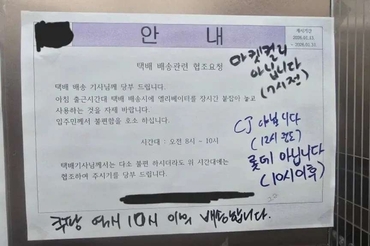 안 내
게시기간
택배 배송관련 협조요청
택배 배송 기사님께 당부 드립니다.
아침 출근시간대 택배 배송시에 엘리베이터를 장시간 붙잡아 놓고
사용하는 것을 자제 바랍니다.
입주민께서 불편함을 호소 하십니다.
시간대 : 오전 8시 - 10시
택배기사님께서는 다소 불편 하시더라도 위 시간대에는
협조하여 주시기를 당부 드립니다.
마켓컬리
아닙니다
(7시전)
CJ 아닙니다
(12시 완도)
롯데 아닙니다
(10시이후)
쿠팡 역시 10시 이후 배송합니다.